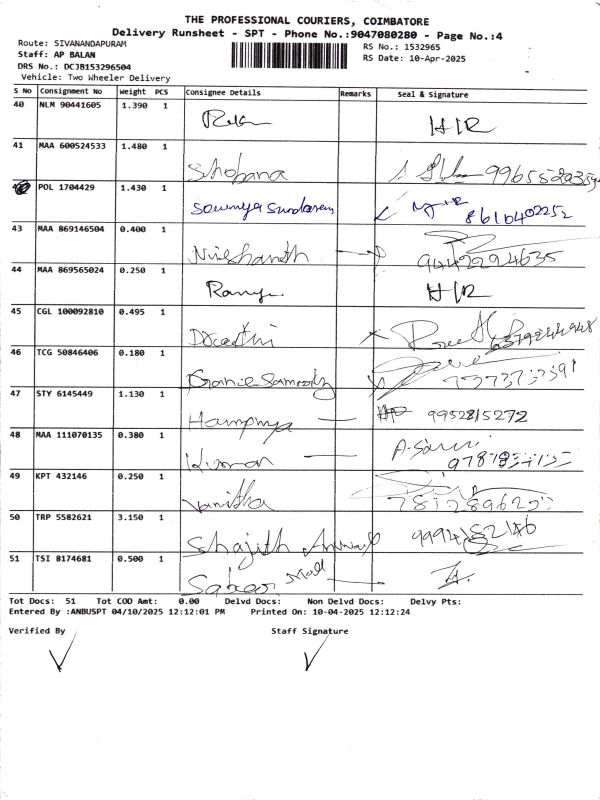 THE PROFESSIONAL COURIERS, COIMBATORE
Delivery Runsheet - SPT - Phone No.:9047080280 - Page No.:4
Route: SIVANANDAPURAM
RS No.: 1532965
Staff: AP BALAN
RS Date: 10-Apr-2025
DRS No.: DCJB153296504
Vehicle: Two Wheeler Delivery
S No Consignment No Weight PCS Consignee Details Remarks Seal & Signature
40 NLM 90441605 1.390 1
H/R
41 MAA 600524533 1.480 1
Shobana
POL 1704429 1.430 1
Sowmya Sundaram 8610402252
43 MAA 869146504 0.400 1
Nishanth 9442294635
44 MAA 869565024 0.250 1
Ramya H/R
45 CGL 100092810 0.495 1
46 TCG 50846406 0.180 1
47 STY 6145449 1.130 1
9952815272
48 MAA 111070135 0.380 1
49 KPT 432146 0.250 1
Vanitha
50 TRP 5582621 3.150 1
Shajith
51 TSI 8174681 0.500 1
Tot Docs: 51 Tot COD Amt: 0.00 Delvd Docs: Non Delvd Docs: Delvy Pts:
Entered By :ANBUSPT 04/10/2025 12:12:01 PM Printed On: 10-04-2025 12:12:24
Verified By Staff Signature